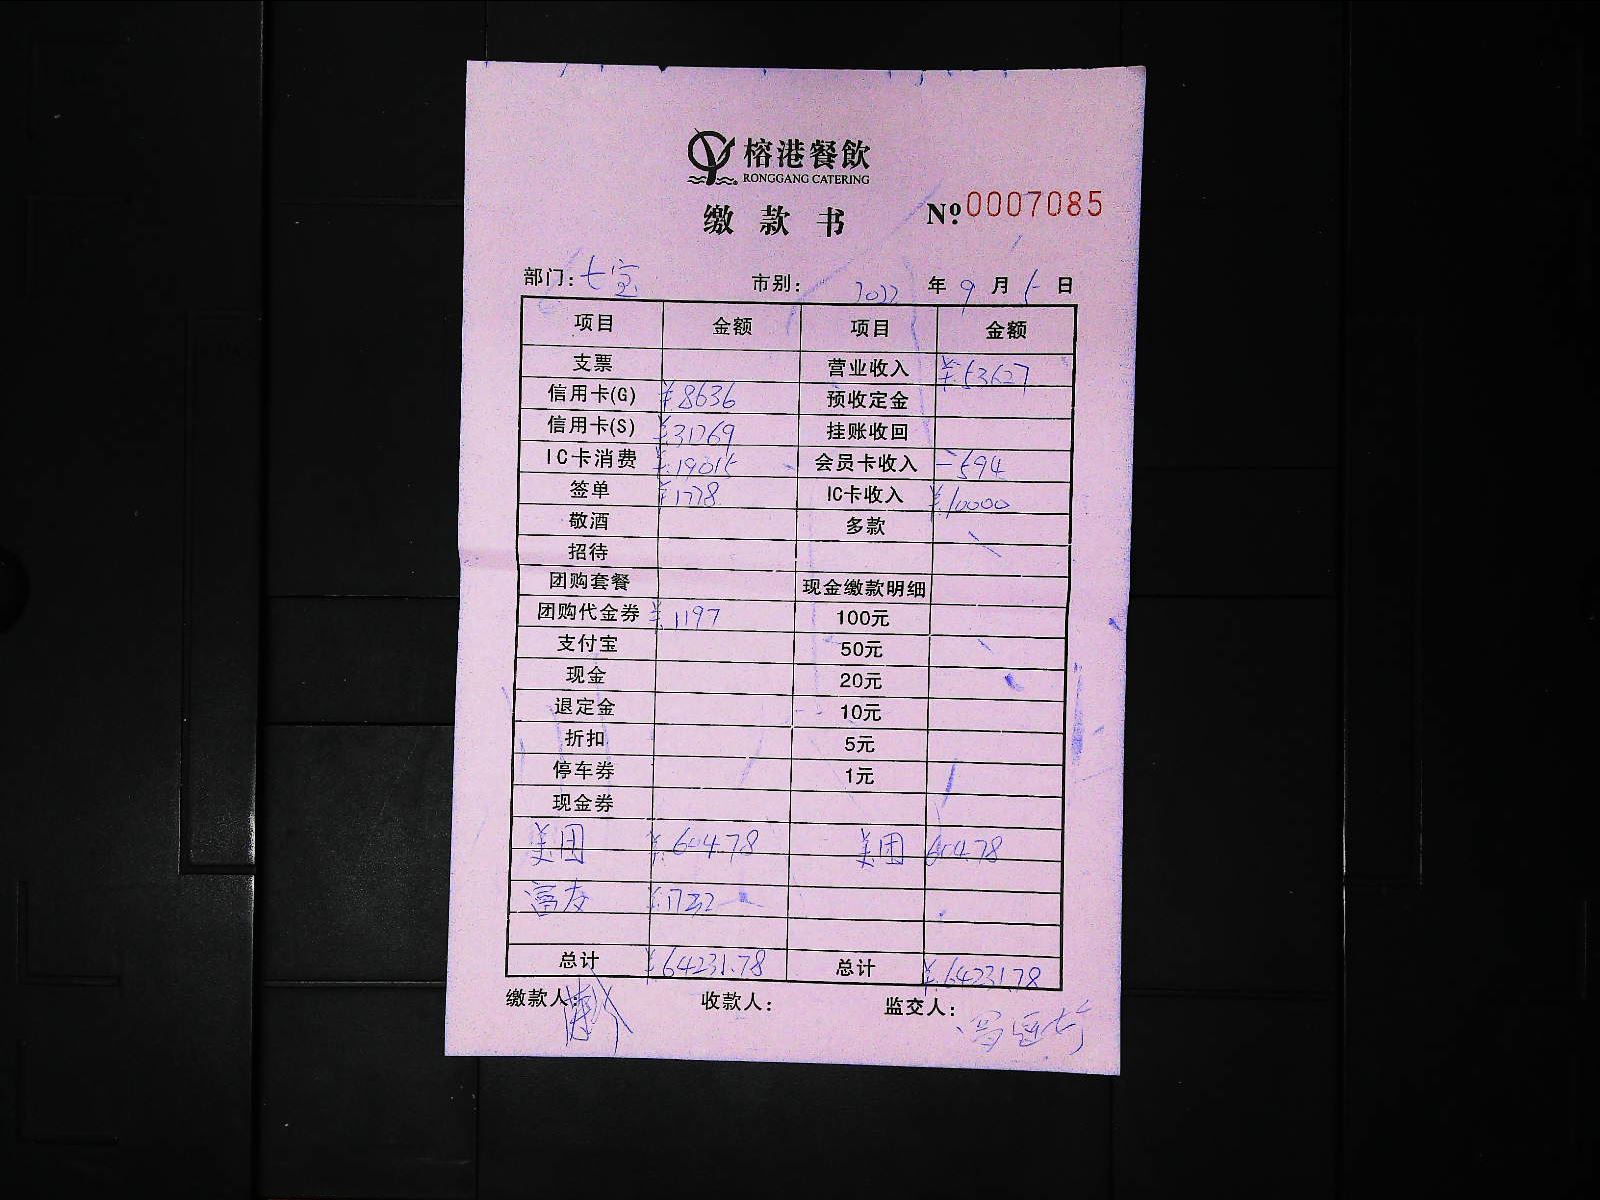 榕港餐飲
RONGGANG CATERING
缴款书 Nº 0007085
部门: 七宝 市别: 2022 年 9 月 5 日
项目 金额 项目 金额
支票 营业收入 ¥53627
信用卡(G) ¥8636 预收定金
信用卡(S) ¥31269 挂账收回
IC卡消费 ¥19015 会员卡收入 -594
签单 ¥1778 IC卡收入 ¥10000
敬酒 多款
招待
团购套餐 现金缴款明细
团购代金券 ¥1197 100元
支付宝 50元
现金 20元
退定金 10元
折扣 5元
停车券 1元
现金券
美团 ¥604.78 美团 604.78
富友 ¥1732
总计 ¥64231.78 总计 ¥64231.78
缴款人: 收款人: 监交人: